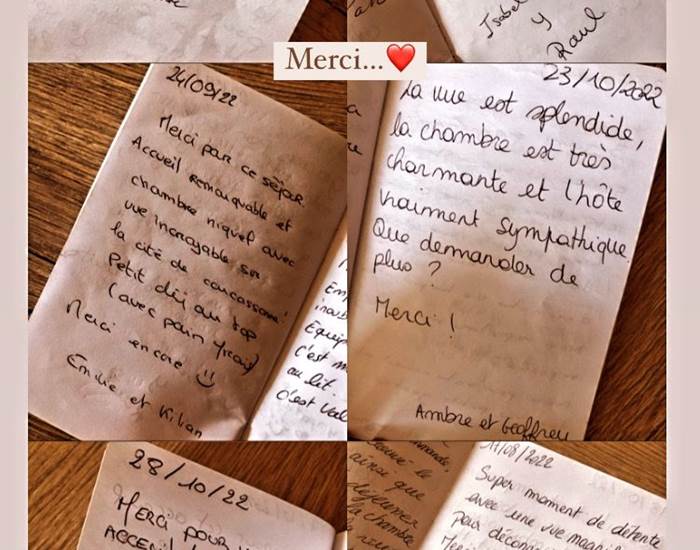 Isabel
y
Raul
Merci...❤️
24/09/22
Merci pour ce séjour
Accueil remarquable et
chambre niquel avec
vue incroyable sur
la cité de carcassonne!
Petit déj au top
(avec pain frais)
Merci encore ☺
Emilie et Kilian
c'est m
au lit
c'est val
23/10/2022
La vue est splendide,
la chambre est très
charmante et l'hôte
vraiment sympathique
Que demander de
plus ?
Merci !
Ambre et Geoffrey
28/10/22
Merci pour
ACCEUIL
ainsi que
déjeuner
la chambre
17/08/2022
Super moment de détente
avec une vue
pour déconn